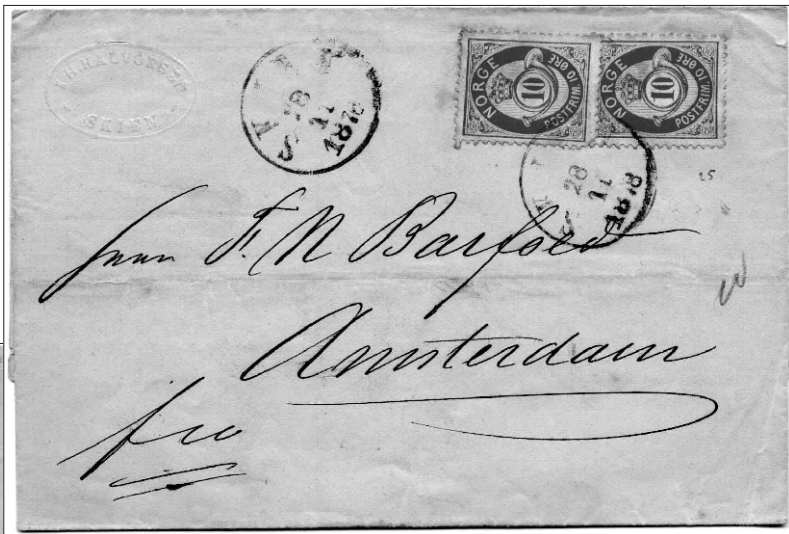 HALVORSEN
SKIEN
28
11
1878
NORGE
10
POSTFRIM. 10 ØRE
NORGE
10
POSTFRIM. 10 ØRE
28
11
1878
25
Herrn F. N Barfoed
Amsterdam
fco